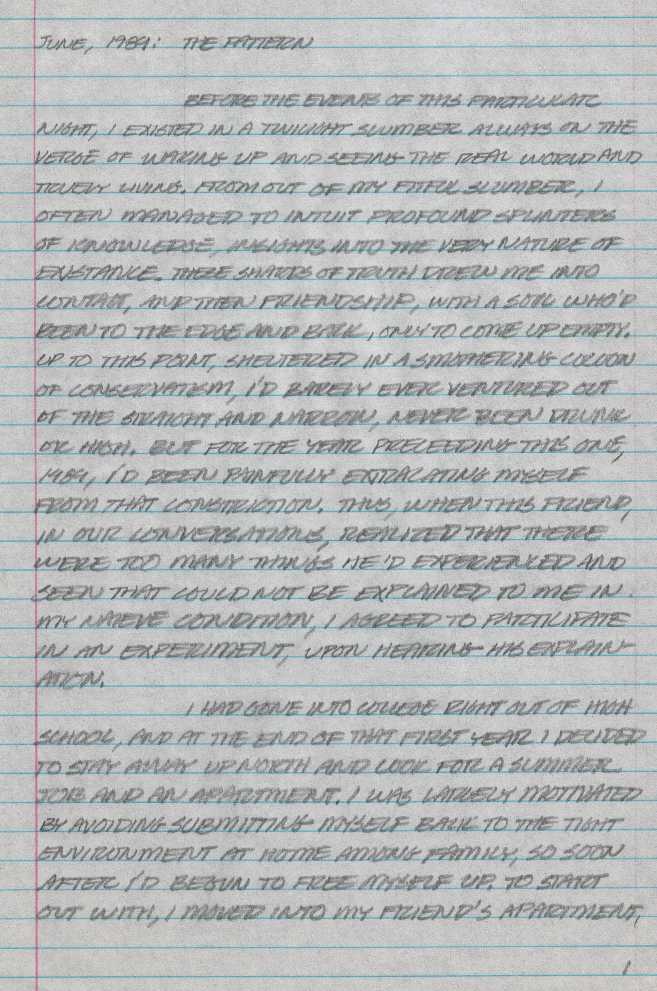 JUNE, 1989: THE PATTERN
BEFORE THE EVENTS OF THIS PARTICULAR
NIGHT, I EXISTED IN A TWILIGHT SLUMBER ALWAYS ON THE
VERGE OF WAKING UP AND SEEING THE REAL WORLD AND
TRUELY LIVING. FROM OUT OF MY FITFUL SLUMBER, I
OFTEN MANAGED TO INTUIT PROFOUND SPLINTERS
OF KNOWLEDGE, INSIGHTS INTO THE VERY NATURE OF
EXISTANCE. THESE SHARDS OF TRUTH DREW ME INTO
CONTACT, AND THEN FRIENDSHIP, WITH A SOUL WHO'D
BEEN TO THE EDGE AND BACK, ONLY TO COME UP EMPTY.
UP TO THIS POINT, SHELTERED IN A SMOTHERING COCOON
OF CONSERVATISM, I'D BARELY EVER VENTURED OUT
OF THE STRAIGHT AND NARROW, NEVER BEEN DRUNK
OR HIGH. BUT FOR THE YEAR PRECEEDING THIS ONE,
1989, I'D BEEN PAINFULLY EXTRACATING MYSELF
FROM THAT CONSTRICTION. THUS, WHEN THIS FRIEND,
IN OUR CONVERSATIONS, REALIZED THAT THERE
WERE TOO MANY THINGS HE'D EXPERIENCED AND
SEEN THAT COULD NOT BE EXPLAINED TO ME IN
MY NAIEVE CONDITION, I AGREED TO PARTICIPATE
IN AN EXPERIMENT, UPON HEARING HIS EXPLAIN-
ATION.
I HAD GONE INTO COLLEGE RIGHT OUT OF HIGH
SCHOOL, AND AT THE END OF THAT FIRST YEAR I DECIDED
TO STAY AWAY UP NORTH AND LOOK FOR A SUMMER
JOB AND AN APARTMENT. I WAS LARGELY MOTIVATED
BY AVOIDING SUBMITTING MYSELF BACK TO THE TIGHT
ENVIRONMENT AT HOME AMONG FAMILY, SO SOON
AFTER I'D BEGUN TO FREE MYSELF UP. TO START
OUT WITH, I MOVED INTO MY FRIEND'S APARTMENT,
1